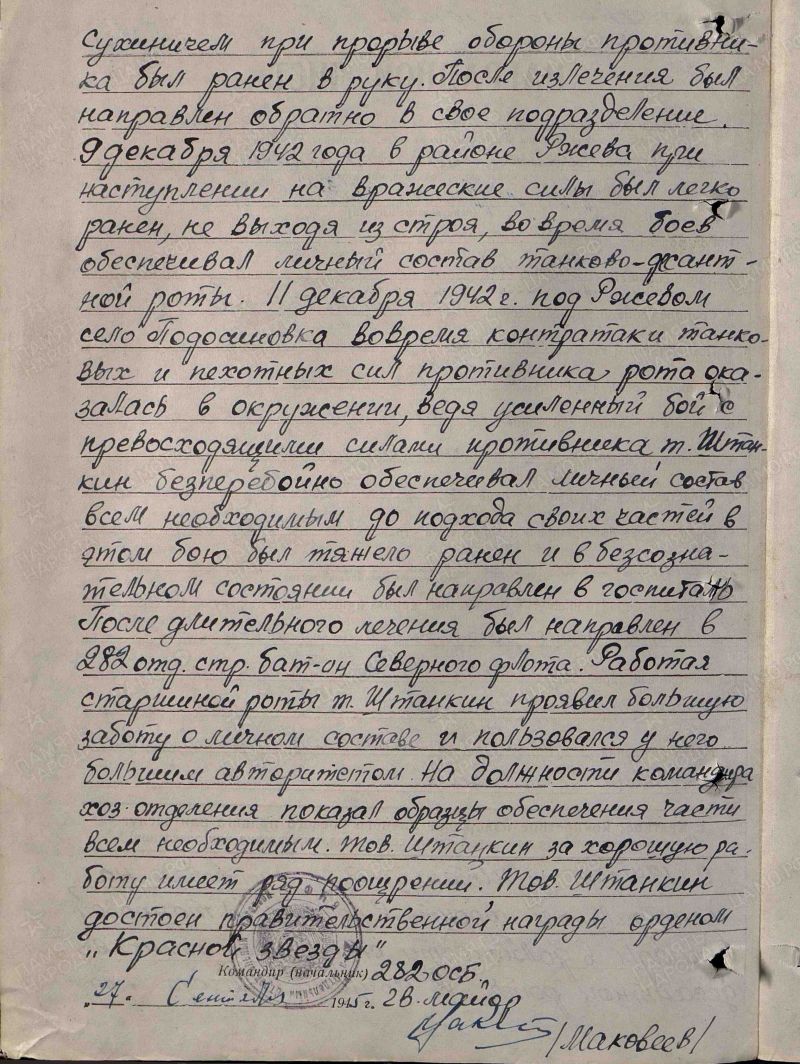 Сухиничем при прорыве обороны противни-
ка был ранен в руку. После излечения был
направлен обратно в свое подразделение.
9 декабря 1942 года в районе Ржева при
наступлении на вражеские силы был легко
ранен, не выходя из строя, во время боев
обеспечивал личный состав танково-десант-
ной роты. 11 декабря 1942 г. под Ржевом
село Подосиновка вовремя контратаки танко-
вых и пехотных сил противника рота ока-
залась в окружении, ведя усиленный бой с
превосходящими силами противника т. Штан-
кин безперебойно обеспечивал личный состав
всем необходимым до подхода своих частей в
этом бою был тяжело ранен и в безсозна-
тельном состоянии был направлен в госпиталь
После длительного лечения был направлен в
282 отд. стр. бат-он Северного флота. Работая
старшиной роты т. Штанкин проявил большую
заботу о личном составе и пользовался у него
большим авторитетом. На должности командира
хоз. отделения показал образцы обеспечения части
всем необходимым. Тов. Штанкин за хорошую ра-
боту имеет ряд поощрений. Тов. Штанкин
достоен правительственной награды орденом
„Красной звезды"
Командир (начальник) 282 осб
„27" Сентября 1945 г. гв. майор
/Маковеев/